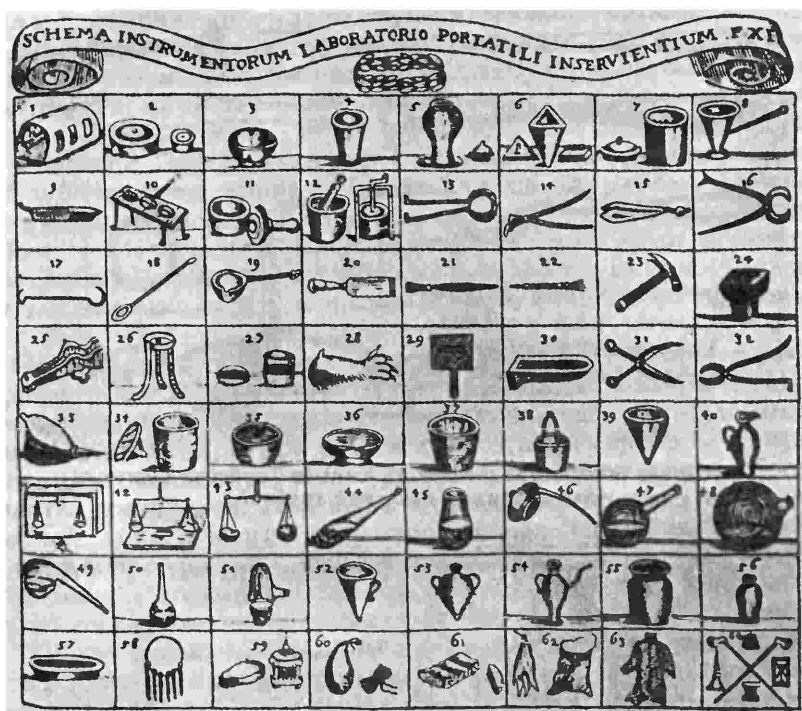 SCHEMA INSTRUMENTORUM LABORATORIO PORTATILI INSERVIENTIUM .F XI
1 2 3 4 5 6 7 8
9 10 11 12 13 14 15 16
17 18 19 20 21 22 23 24
25 26 28 29 30 31 32
33 34 35 36 37 38 39 40
42 43 44 45 46 47 48
49 50 51 52 53 54 55 56
57 58 59 60 61 62 63